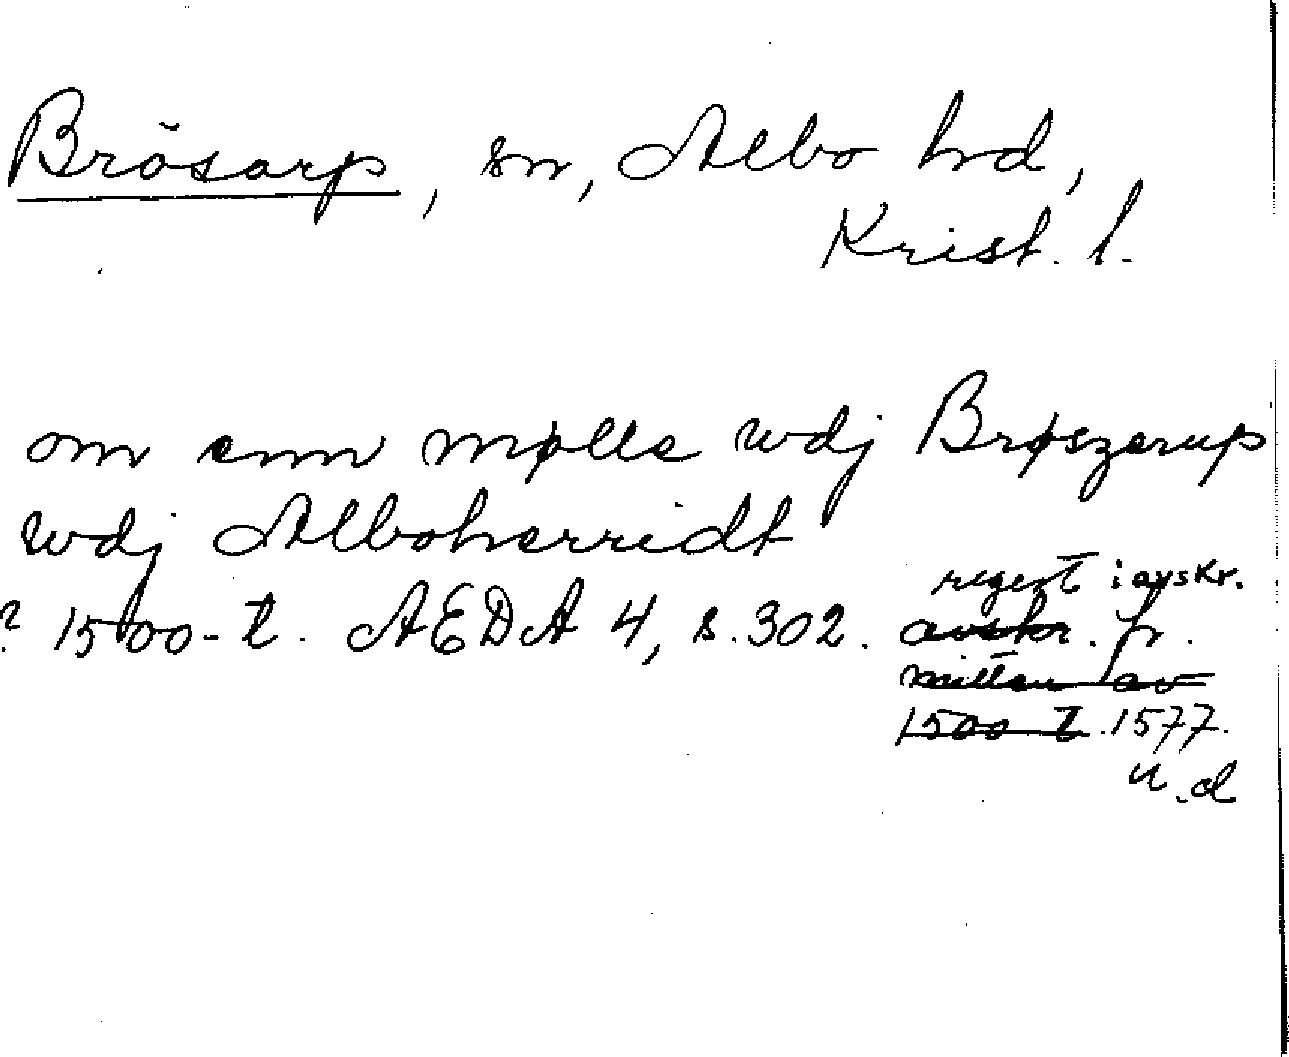 Brösarp, sn, Albo hd,
Krist. l.
om enn mølle wdj Brøszerup
wdj Alboherridt
? 1500-t. AEDA 4, s. 302. avskr. fr.
regest i avskr.
mitten av
1500 t. 1577.
u.d